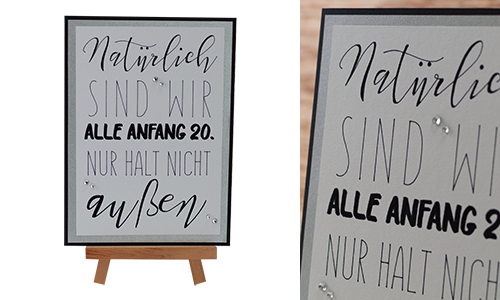 Natürlich
SIND WIR
ALLE ANFANG 20.
NUR HALT NICHT
außen
Natürlic
SIND WI
ALLE ANFANG 2
NUR HALT NICH